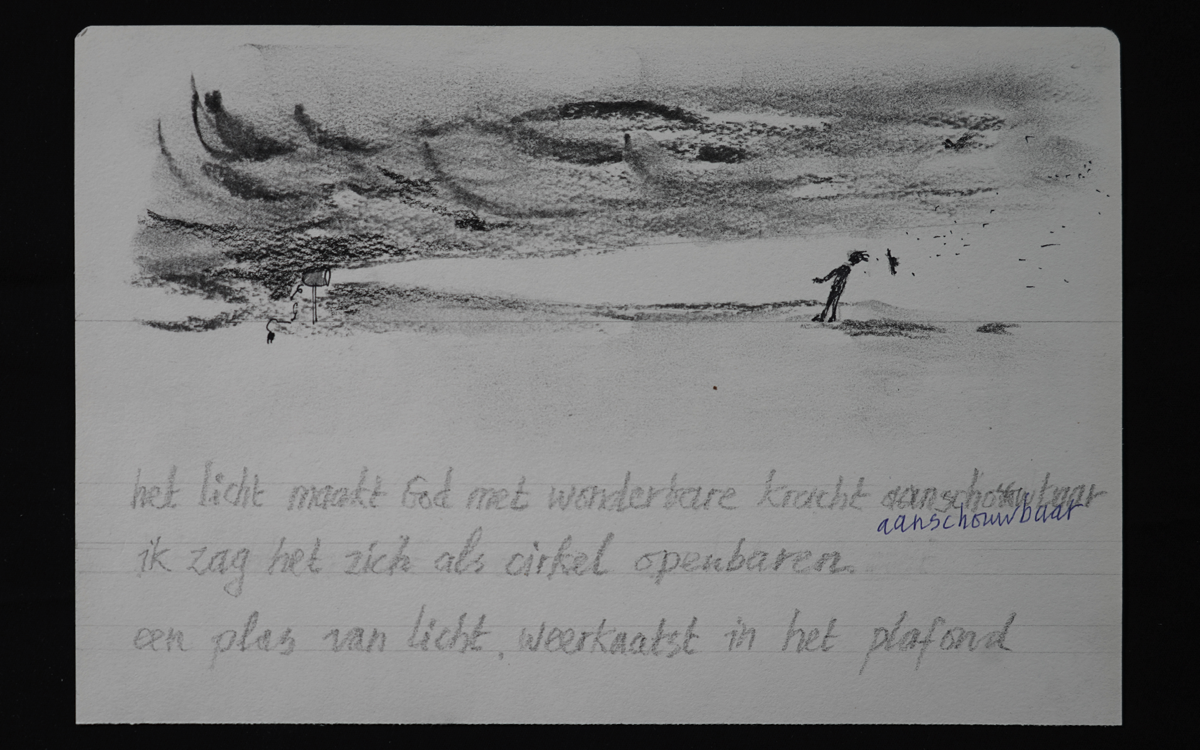 het licht maakt God met wonderbare kracht aanschouwbaar
aanschouwbaar
ik zag het zich als cirkel openbaren.
een plas van licht, weerkaatst in het plafond